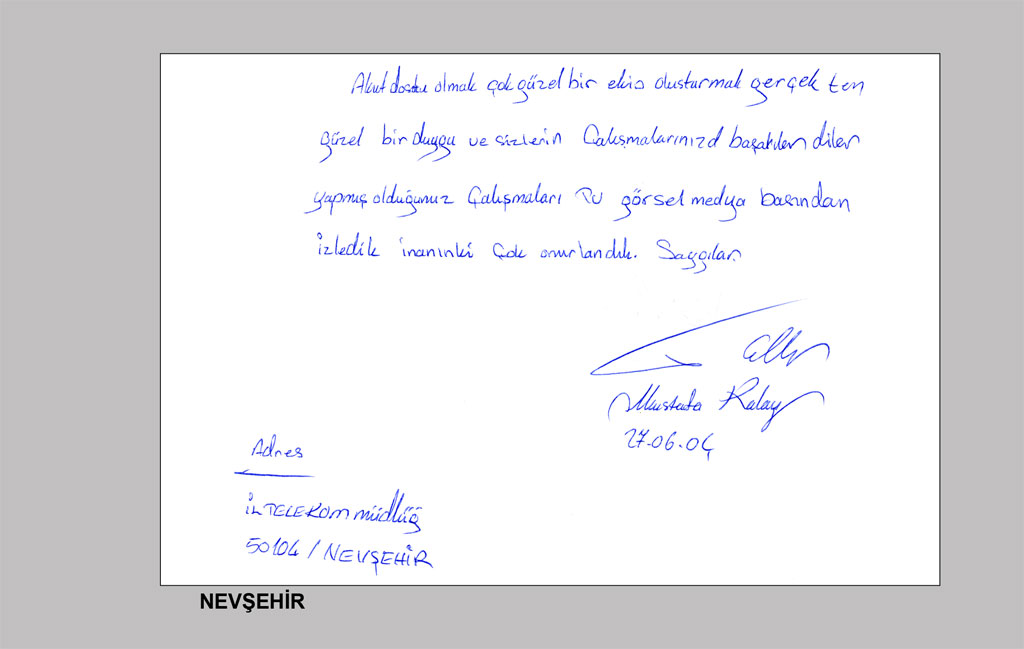 Akut dostu olmak çok güzel bir ekip oluşturmak gerçek ten
güzel bir duygu ve sizlerin Çalışmalarınızd başarılar diler
yapmış olduğunuz Çalışmaları TV görsel medya basından
izledik inanınki Çok onurlandık. Saygılar.
Mustafa Kalay
27.06.04
Adres
İL TELEKOM müdlüğ
50104 / NEVŞEHİR
NEVŞEHİR